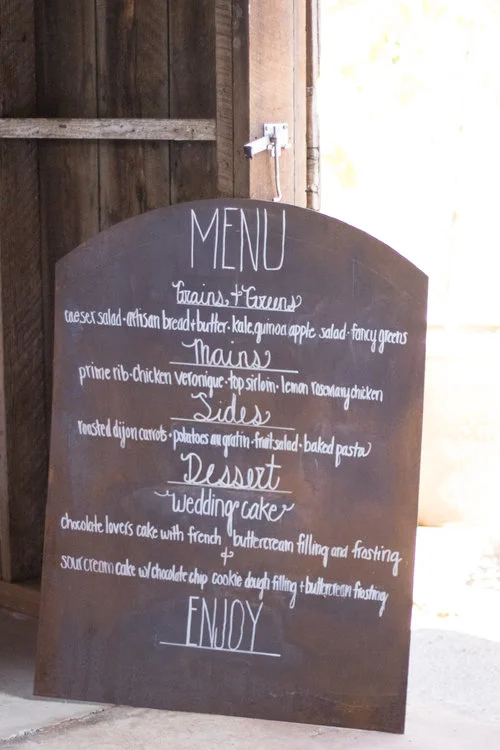 MENU
Grains + Greens
caeser salad · artisan bread + butter · kale, quinoa apple salad · fancy greens
Mains
prime rib · chicken veronique · top sirloin · lemon rosemary chicken
Sides
roasted dijon carrots · potatoes au gratin · fruit salad · baked pasta
Dessert
~Wedding cake~
chocolate lovers cake with french buttercream filling and frosting
+
sour cream cake w/ chocolate chip cookie dough filling + buttercream frosting
ENJOY